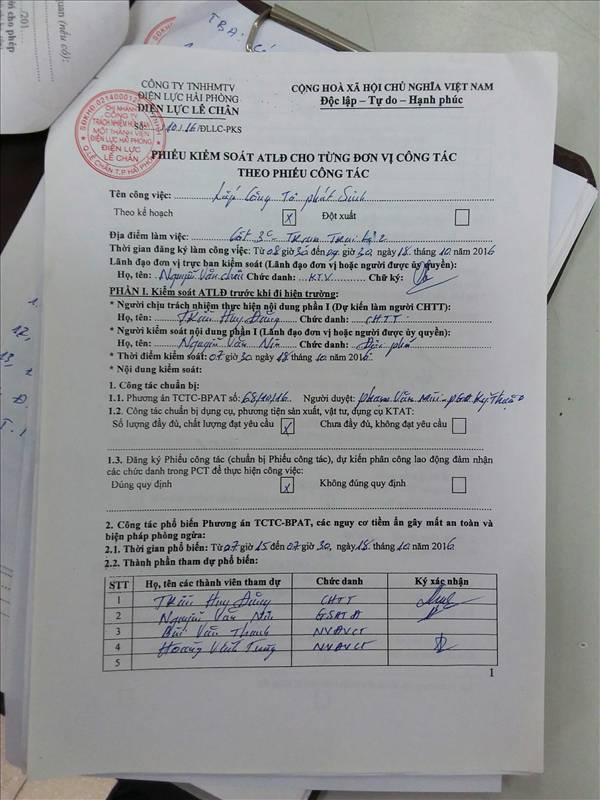 quan (nếu có):
/201
ời cho phép
TBA:
CÔNG TY TNHHMTV
ĐIỆN LỰC HẢI PHÒNG
ĐIỆN LỰC LÊ CHÂN
CỘNG HOÀ XÃ HỘI CHỦ NGHĨA VIỆT NAM
Độc lập – Tự do – Hạnh phúc
SĐKHĐ:02140001
CHI NHÁNH
CÔNG TY
TRÁCH NHIỆM HỮU HẠN
MỘT THÀNH VIÊN
ĐIỆN LỰC HẢI PHÒNG
ĐIỆN LỰC
LÊ CHÂN
Q.LÊ CHÂN-T.P HẢI PHÒNG
Số: /10/16/ĐLLC-PKS
PHIẾU KIỂM SOÁT ATLĐ CHO TỪNG ĐƠN VỊ CÔNG TÁC
THEO PHIẾU CÔNG TÁC
Tên công việc: Lắp Công Tơ phát Sinh
Theo kế hoạch X Đột xuất
Địa điểm làm việc: Cột 3C - Trung Trai
Thời gian đăng ký làm công việc: Từ 08 giờ 30 đến 09 giờ 30, ngày 18 tháng 10 năm 2016
Lãnh đạo đơn vị trực ban kiểm soát (Lãnh đạo đơn vị hoặc người được ủy quyền):
Họ, tên: Nguyễn Văn Chức danh: KTV Chữ ký:
PHẦN I. Kiểm soát ATLĐ trước khi đi hiện trường:
* Người chịu trách nhiệm thực hiện nội dung phần I (Dự kiến làm người CHTT):
Họ, tên: Trần Huy Đăng Chức danh: CHTT
* Người kiểm soát nội dung phần I (Lãnh đạo đơn vị hoặc người được ủy quyền):
Họ, tên: Nguyễn Văn Chức danh: Đội phó
* Thời điểm kiểm soát: 07 giờ 30 ngày 18 tháng 10 năm 2016
* Nội dung kiểm soát:
1. Công tác chuẩn bị:
1.1. Phương án TCTC-BPAT số: 68/10/16 Người duyệt: Phạm Văn - PGĐ Kỹ Thuật
1.2. Công tác chuẩn bị dụng cụ, phương tiện sản xuất, vật tư, dụng cụ KTAT:
Số lượng đầy đủ, chất lượng đạt yêu cầu X Chưa đầy đủ, không đạt yêu cầu
1.3. Đăng ký Phiếu công tác (chuẩn bị Phiếu công tác), dự kiến phân công lao động đảm nhận
các chức danh trong PCT để thực hiện công việc:
Đúng quy định X Không đúng quy định
2. Công tác phổ biến Phương án TCTC-BPAT, các nguy cơ tiềm ẩn gây mất an toàn và
biện pháp phòng ngừa:
2.1. Thời gian phổ biến: Từ 07 giờ 15 đến 07 giờ 30, ngày 18 tháng 10 năm 2016
2.2. Thành phần tham dự phổ biến:
STT Họ, tên các thành viên tham dự Chức danh Ký xác nhận
1 Trần Huy Đăng CHTT
2 Nguyễn Văn GSATĐ
3 Bùi Văn Thanh NVĐVCT
4 Hoàng Tùng NVĐVCT
5
1